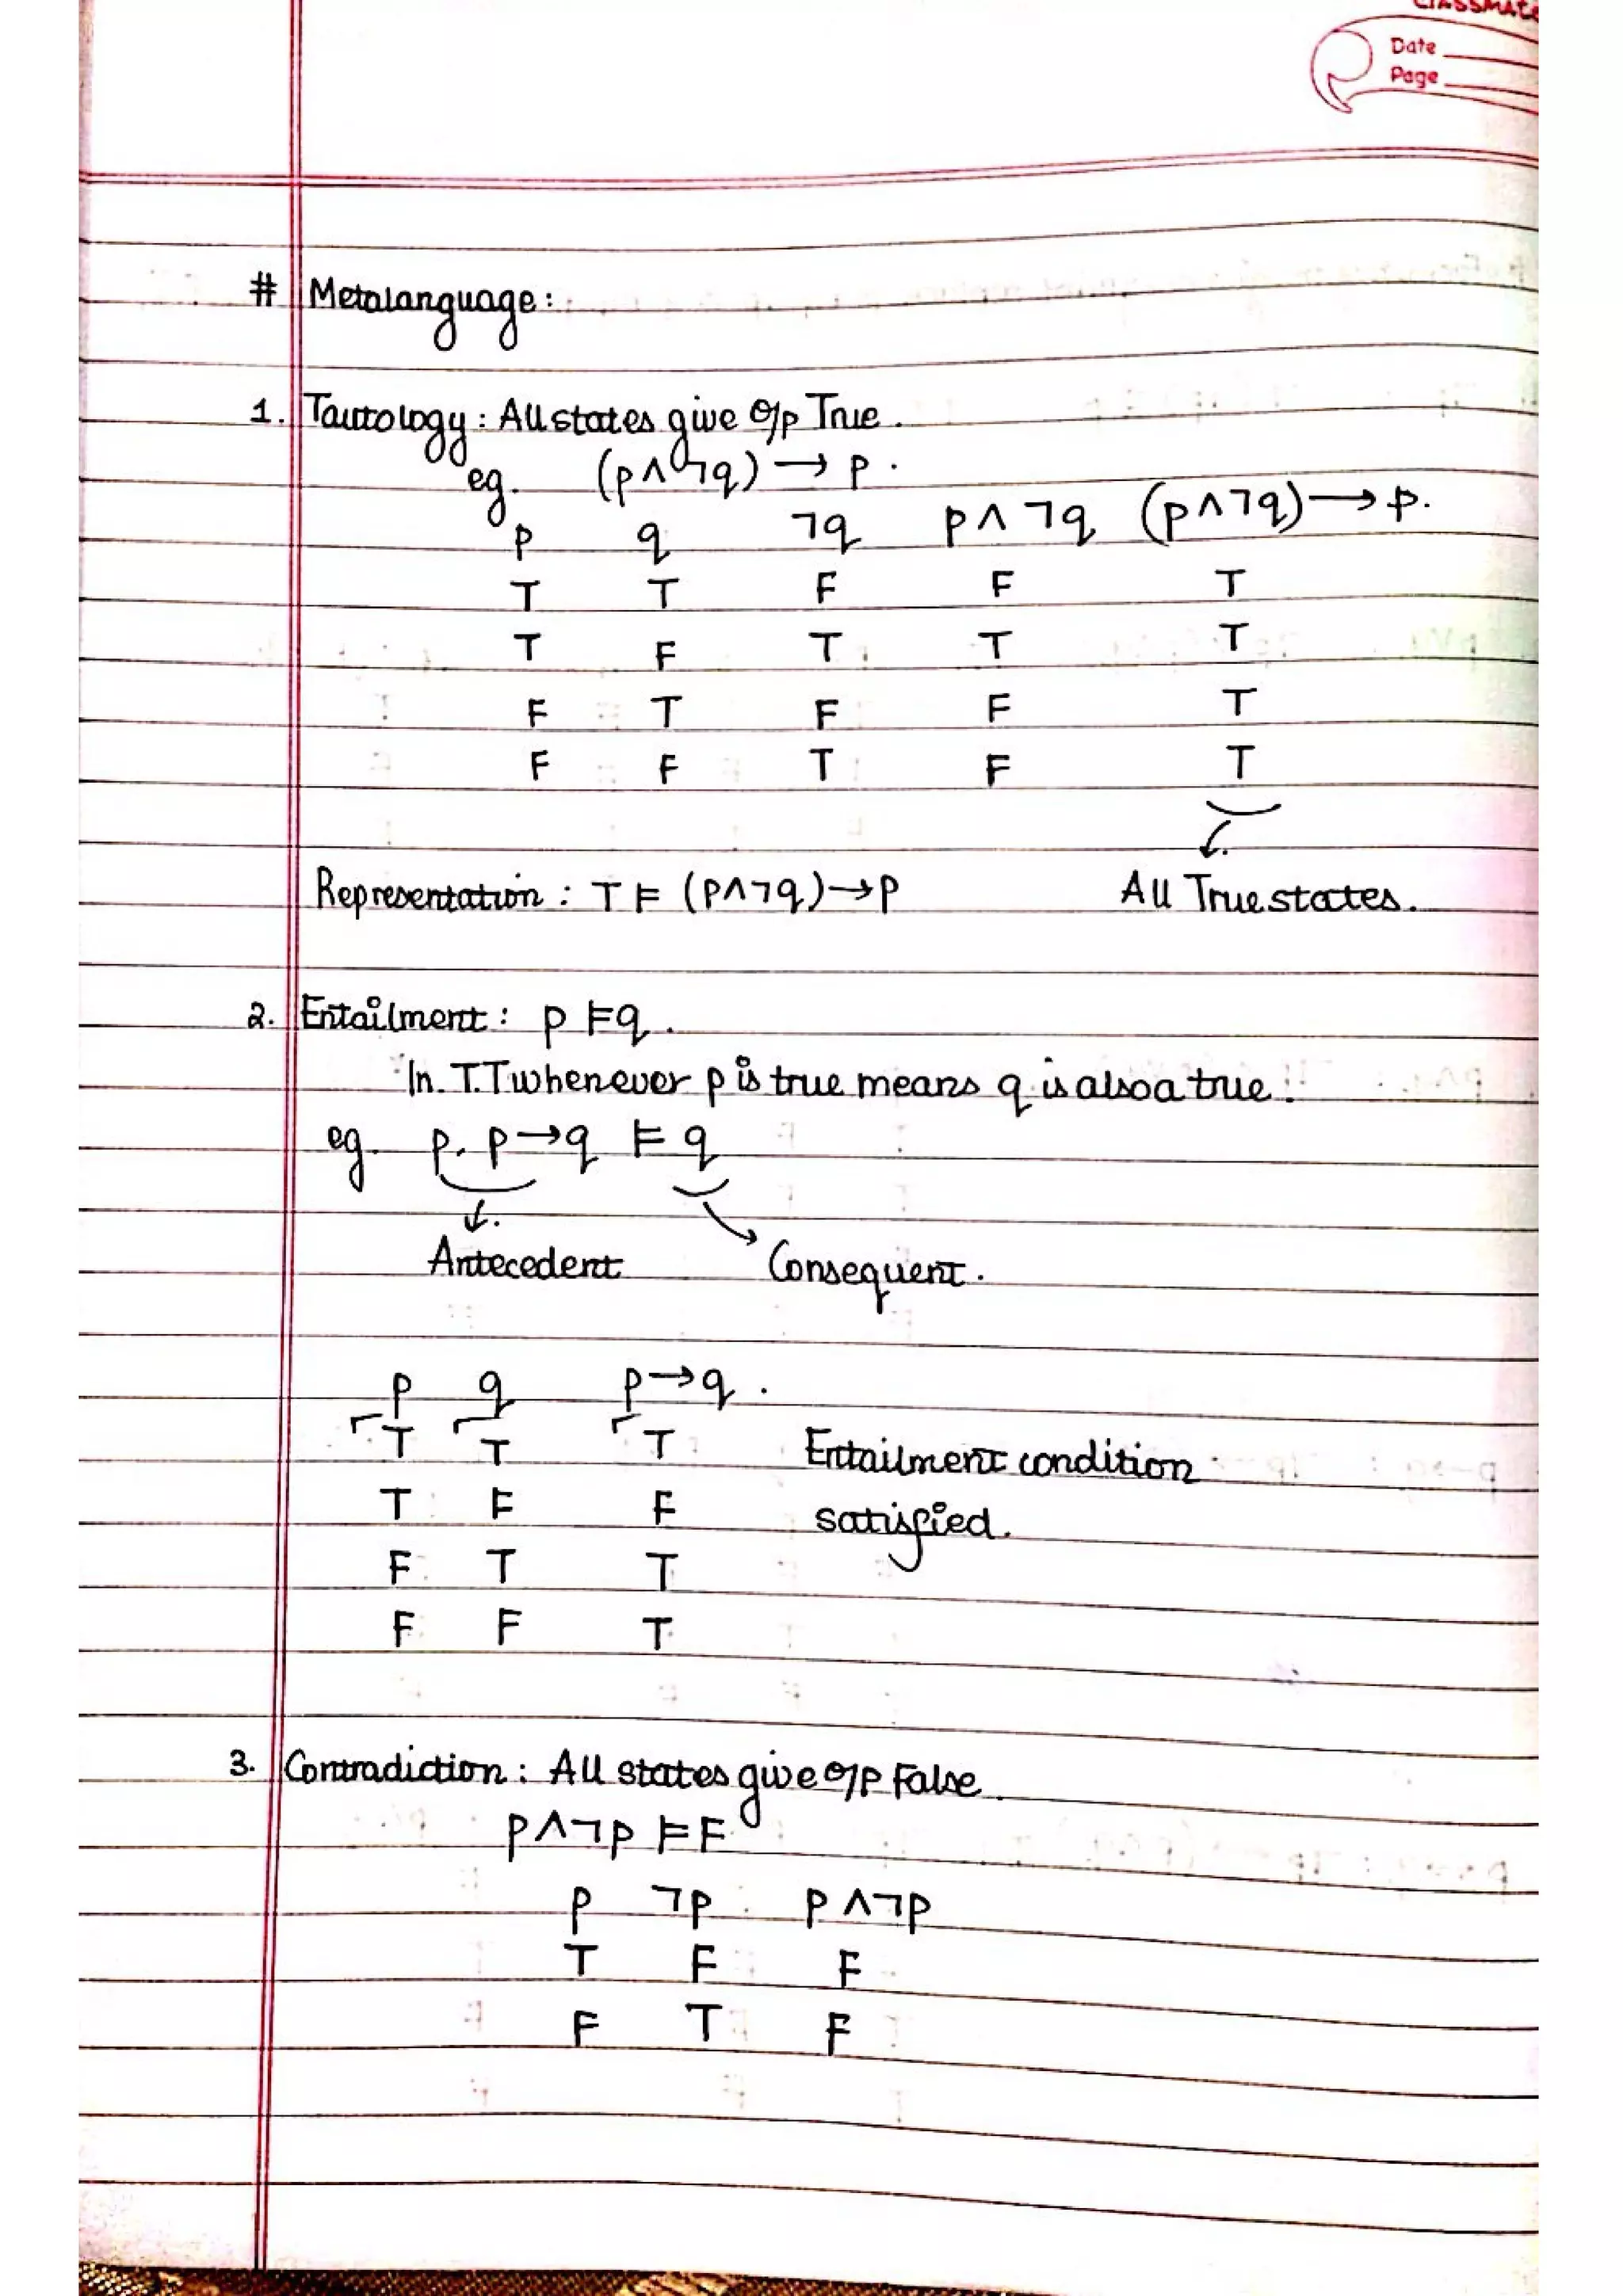 classmate
Date
Page
# Metalanguage:
1. Tautology: All states give O/p True.
eg. (p∧¬q) → p.
p q ¬q p∧¬q (p∧¬q) → p.
T T F F T
T F T T T
F T F F T
F F T F T
Representation: T ⊨ (p∧¬q)→p All True states.
2. Entailment: p ⊨ q.
In T.T whenever p is true means q is also a true.
eg. p, p→q ⊨ q
Antecedent Consequent.
p q p→q.
T T T Entailment condition
T F F satisfied.
F T T
F F T
3. Contradiction: All states give O/P False.
p∧¬p ⊨ F
p ¬p p∧¬p
T F F
F T F